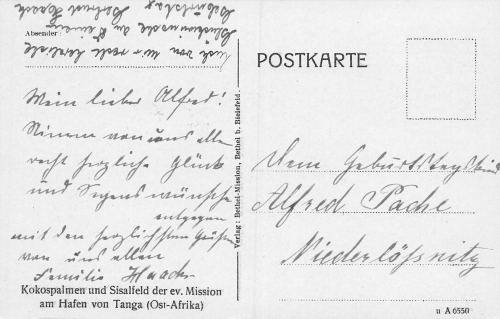 Auch von mir recht herzliche
Absender:
Glückwünsche zu Deinem
Geburtstag
POSTKARTE
Mein lieber Alfred!
Nimm von uns allen
recht herzliche Glück
und Segenswünsche
entgegen
mit den herzlichsten Grüßen
von uns allen
Familie Haack
Kokospalmen und Sisalfeld der ev. Mission
am Hafen von Tanga (Ost-Afrika)
Verlag: Bethel-Mission, Bethel b. Bielefeld.
Dem Geburtstagskind
Alfred Pache
Niederlößnitz
u A 6550